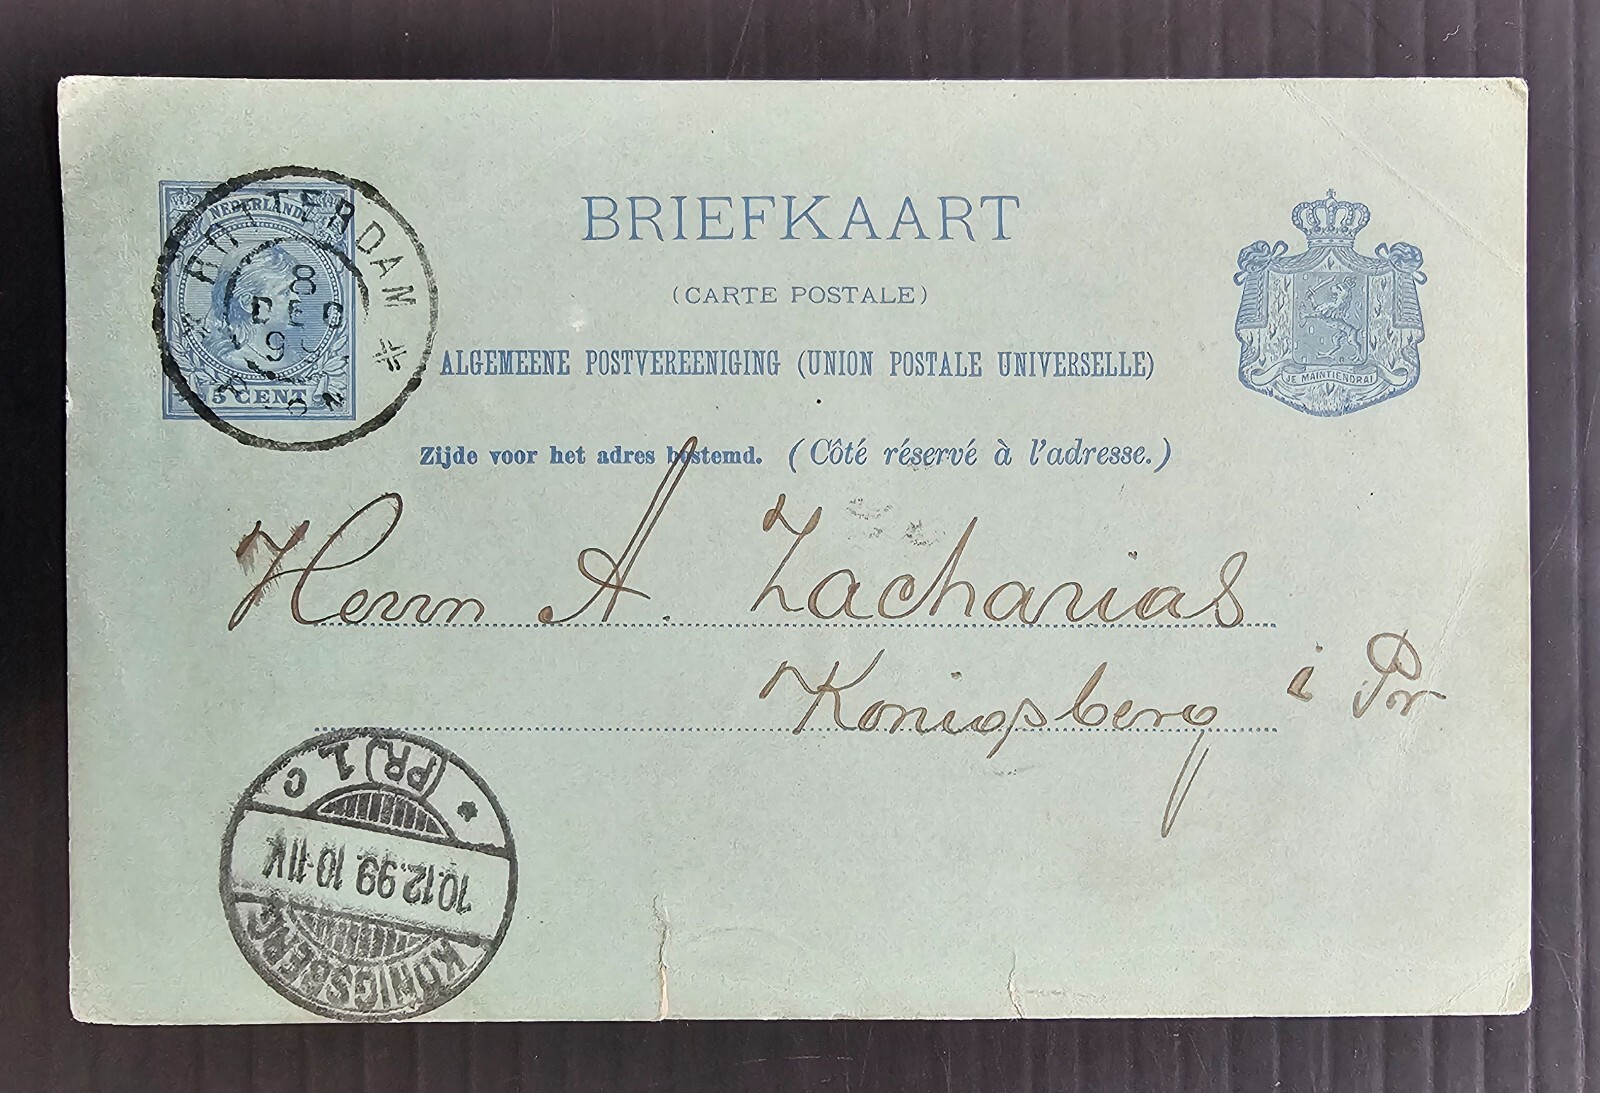 NEDERLAND
5 CENT
ROTTERDAM
8
DEC
BRIEFKAART
(CARTE POSTALE)
ALGEMEENE POSTVEREENIGING (UNION POSTALE UNIVERSELLE)
JE MAINTIENDRAI
Zijde voor het adres bestemd. (Côté réservé à l'adresse.)
Herrn A. Zacharias
Konigsberg i Pr
KÖNIGSBERG
10.12.99.10-11V.
(PR) 1. c